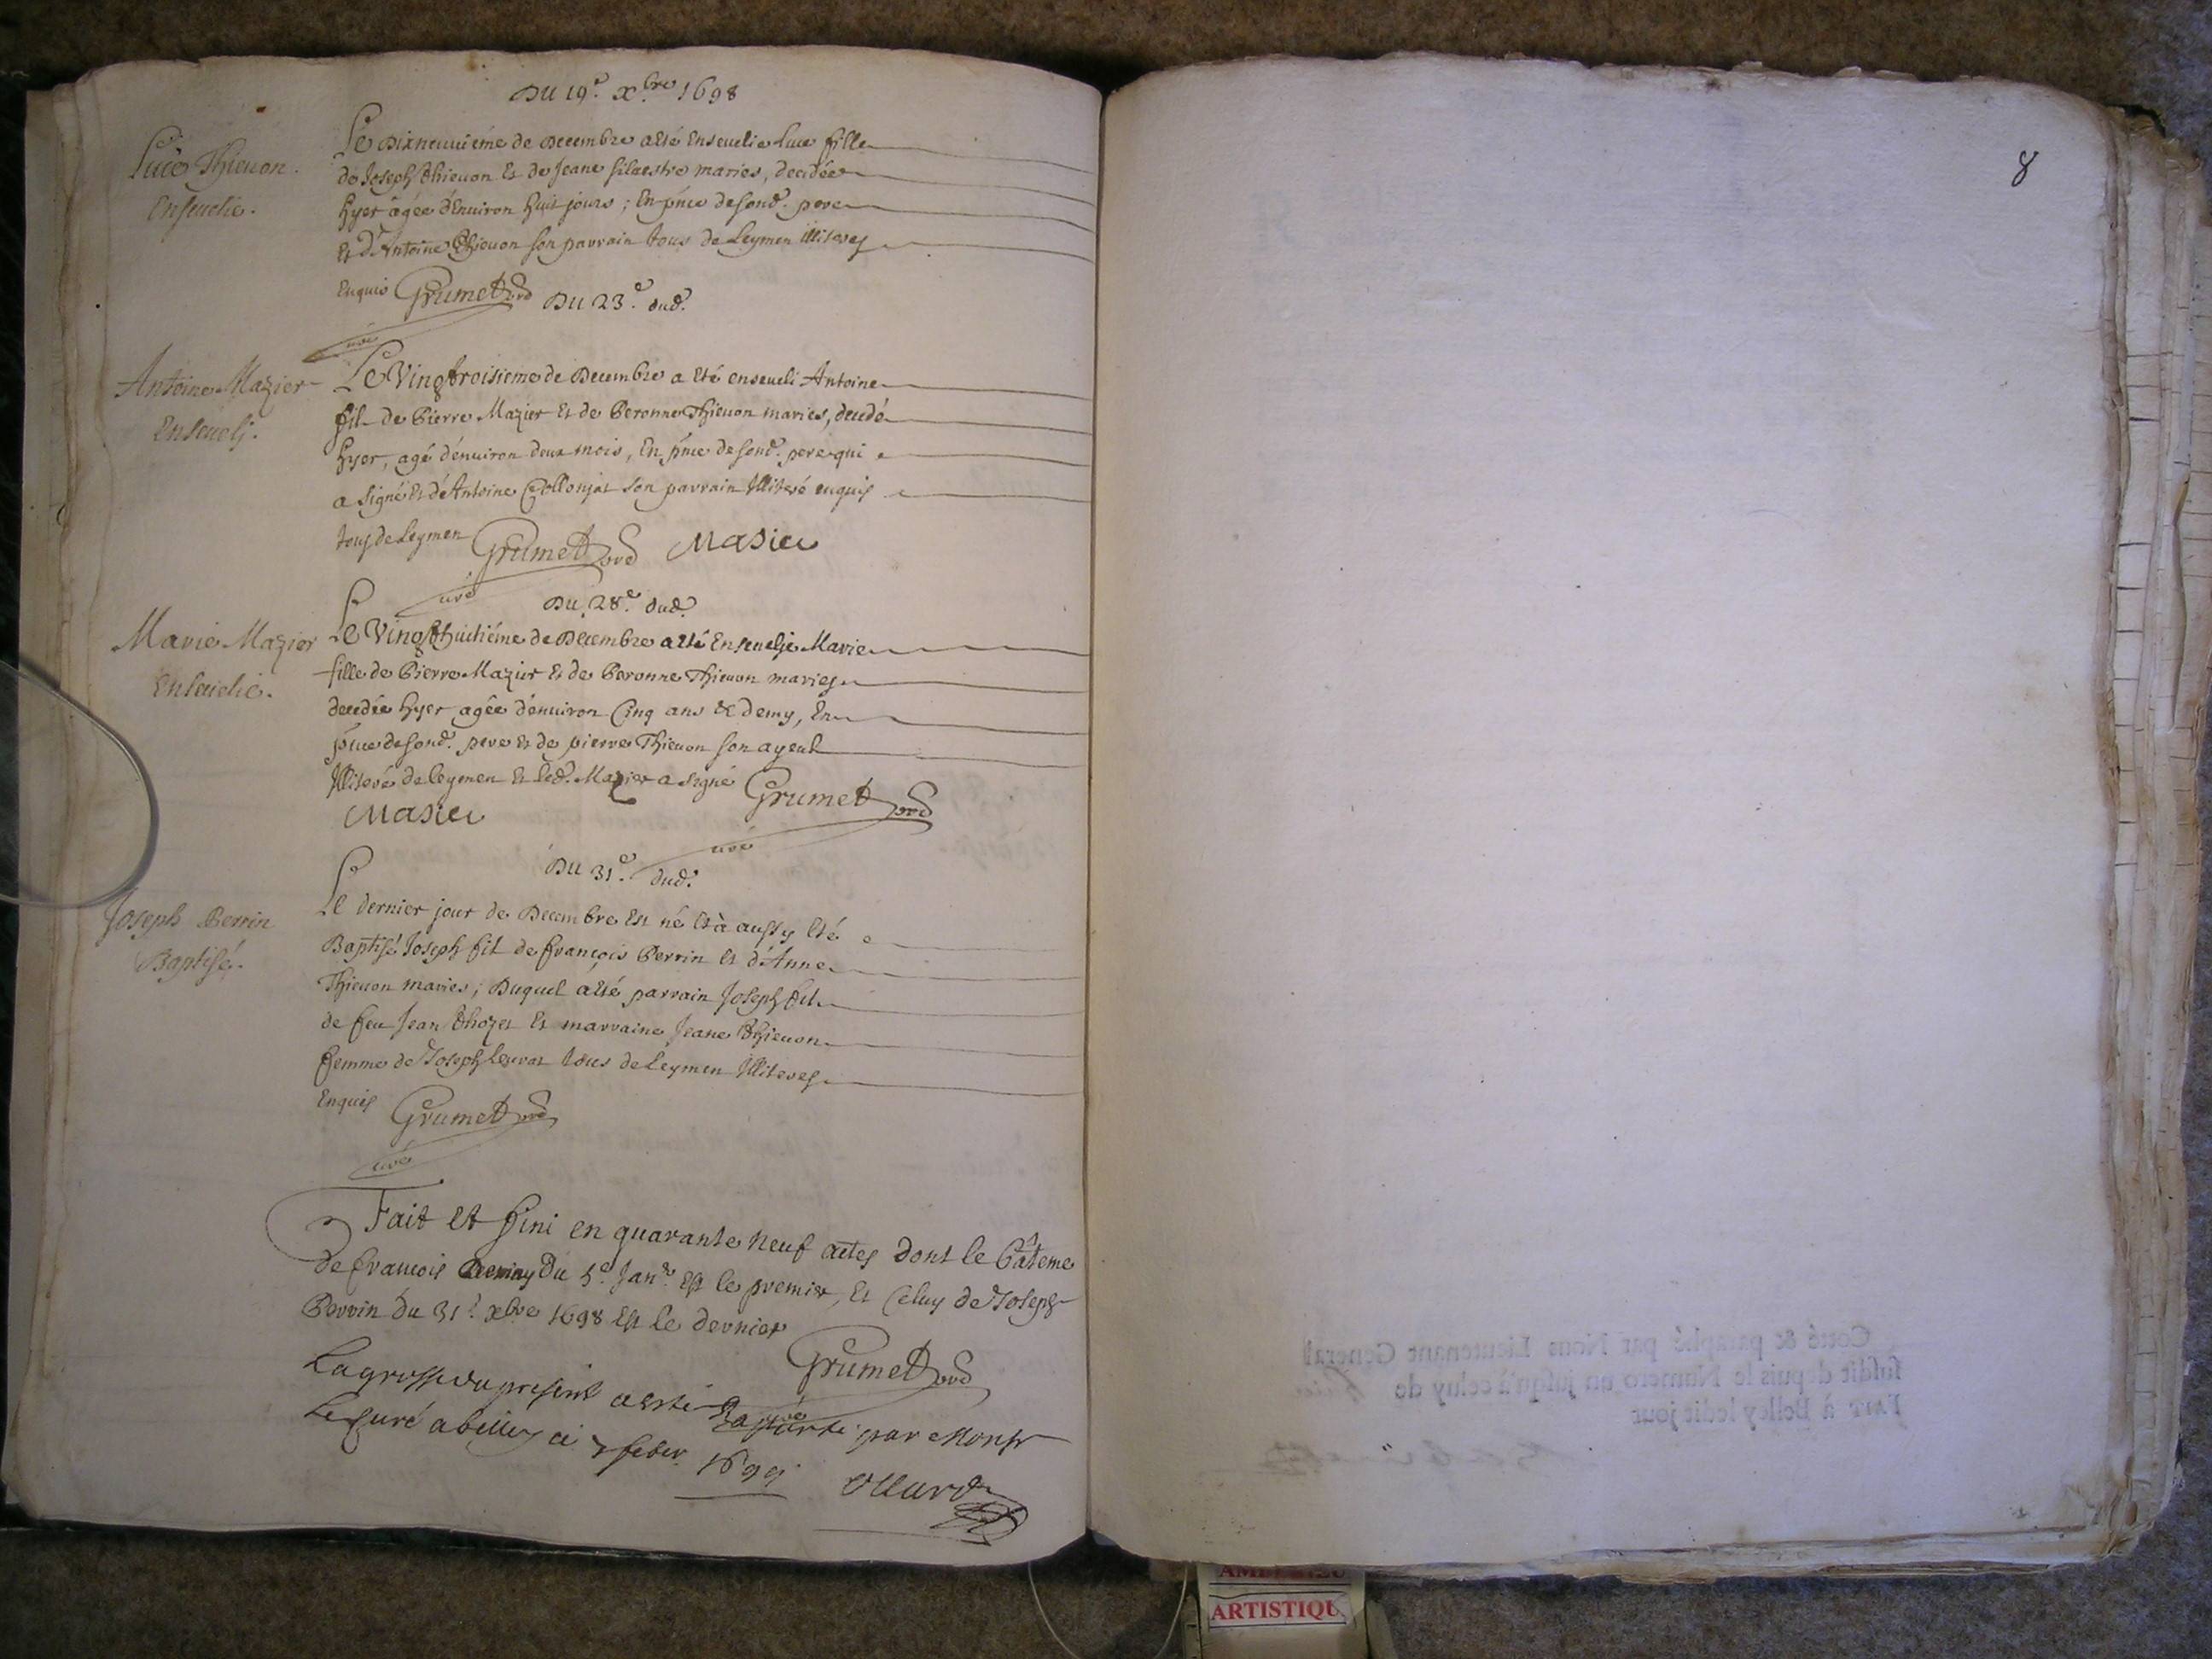 Du 19e. xbre 1698
Luce Thieuon.
Enseuelie.
Le Dixneuuiéme de Decembre a eté Enseuelie Luce fille
de Joseph Thieuon Et de Jeane siluestre maries, decidée
hyer agée d'Enuiron huit jours ; En pnce de sond. pere
Et d'Antoine Thieuon son parrain tous de Leymen illiteres
Enquis Grumet
Du 23e. dud.
Antoine Mazier
Enseuelj.
Le Vingtroisieme de Decembre a eté enseueli Antoine
fil de Pierre Mazier Et de Peronne Thieuon maries, decidé
hyer, agé d'enuiron deux mois, En pnce de sond. pere qui
a signé Et d'Antoine Collonjat son parrain Illiteré enquis
tous de Leymen Grumet curé Masier
Du 28e. dud.
Marie Mazier
Enseuelie.
Le Vingthuitiéme de Decembre a eté Enseuelje Marie
fille de Pierre Mazier Et de Peronne Thieuon maries
decidée hyer agée d'enuiron Cinq ans & demy, En
pnce de sond. pere Et de pierre Thieuon son ayeul
Illiteré de leymen Et led. Mazier a signé Grumet curé
Masier
Du 31e. dud.
Joseph Perrin
Baptisé.
Le dernier jour de Decembre Est né Et à aussy Eté
Baptisé Joseph fil de François Perrin Et d'Anne
Thieuon maries ; Duquel a eté parrain Joseph fil
de feu Jean Thozet Et marraine Jeane Thieuon
femme de Joseph Leurat tous de Leymen Illiteres
Enquis Grumet
curé
Fait Et fini en quarante neuf actes dont le Bâteme
de François du 5e. Janr. Est le premier, Et Celuy de Joseph
Perrin du 31e. xbre 1698 Est le dernier
Grumet curé
La grosse du present a esté par Monsr
Le Curé a belley ce 7 feber. 1699
8
Cotté & paraphé par Nous Lieutenant General
susdit depuis le Numero un jusqu'à celuy de
FAIT à Belley ledit jour
ARTISTIQU